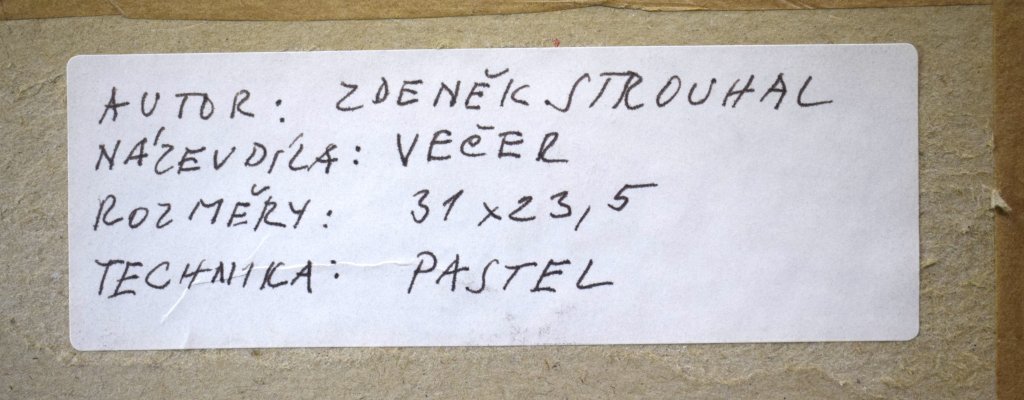 AUTOR: ZDENĚK STROUHAL
NÁZEV DÍLA: VEČER
ROZMĚRY: 31 x 23,5
TECHNIKA: PASTEL